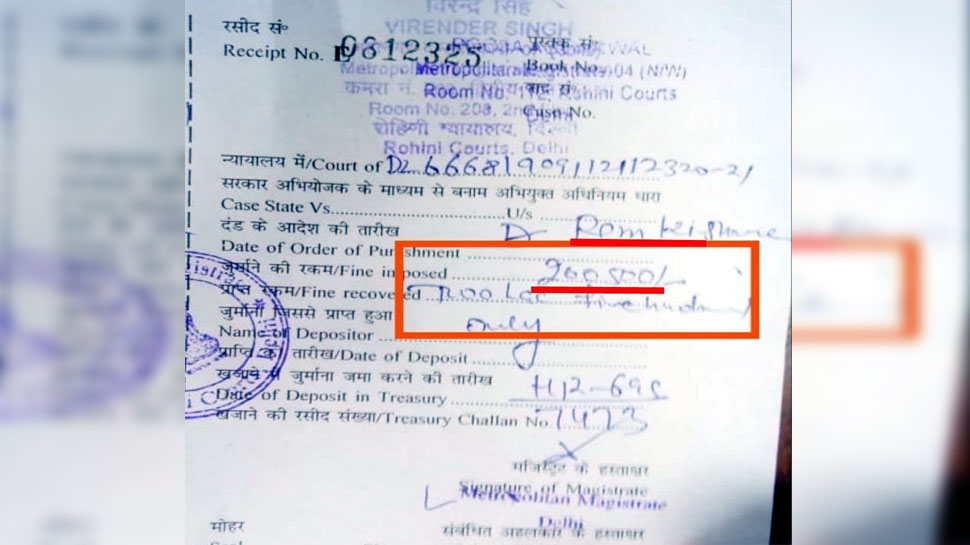 विरेन्द्र सिंह
VIRENDER SINGH
रसीद सं०
Receipt No. 0812325
पुस्तक सं०
Book No.
Metropolitan Magistrate-04 (N/W)
कमरा नं.
Room No. 112, Rohini Courts
Room No. 208, 2nd
Case No.
रोहिणी न्यायालय, दिल्ली
Rohini Courts, Delhi
न्यायालय में/Court of DL 66681909112112320-21
सरकार अभियोजक के माध्यम से बनाम अभियुक्त अधिनियम धारा
Case State Vs. U/s
दंड के आदेश की तारीख
Date of Order of Punishment
Ram
जुर्माने की रकम/Fine imposed 200500/-
प्राप्त रकम/Fine recovered Two Lac Five hundred
जुर्माना जिससे प्राप्त हुआ only
Name of Depositor
प्राप्ति की तारीख/Date of Deposit
खजाने में जुर्माना जमा करने की तारीख
Date of Deposit in Treasury
खजाने की रसीद संख्या/Treasury Challan No. 7473
मजिस्ट्रेट के हस्ताक्षर
Signature of Magistrate
Metropolitan Magistrate
Delhi
मोहर
संबंधित अहलकार के हस्ताक्षर